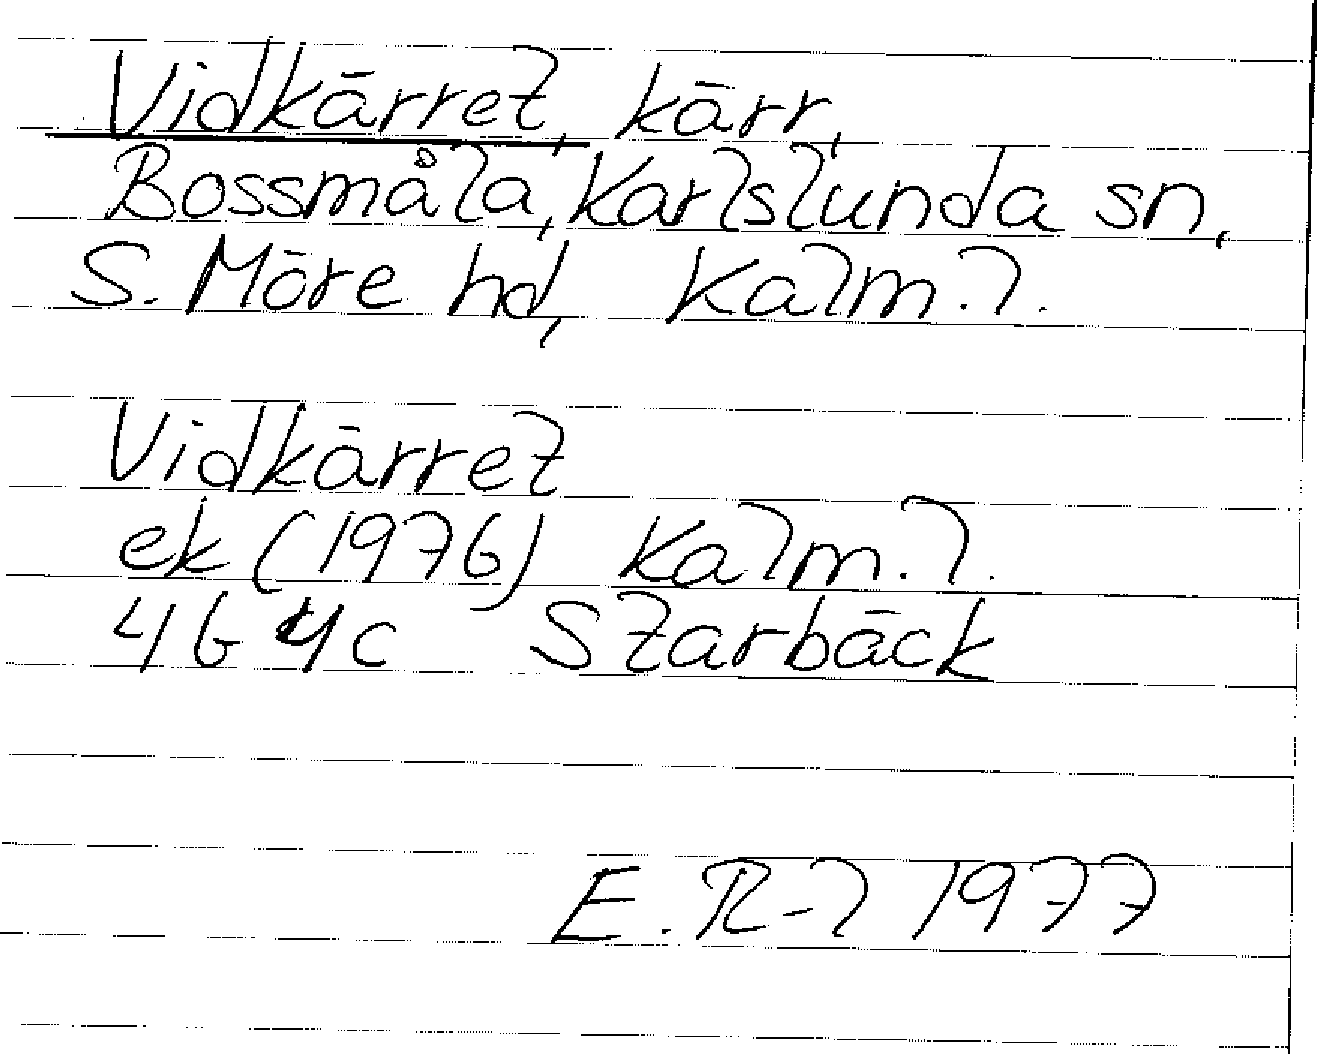 Vidkärret, kärr,
Bossmåla, Karlslunda sn,
S. Möre hd, Kalm. l.
Vidkärret
ek (1976) Kalm. l.
4G 4c Starbäck
E. R-l 1977